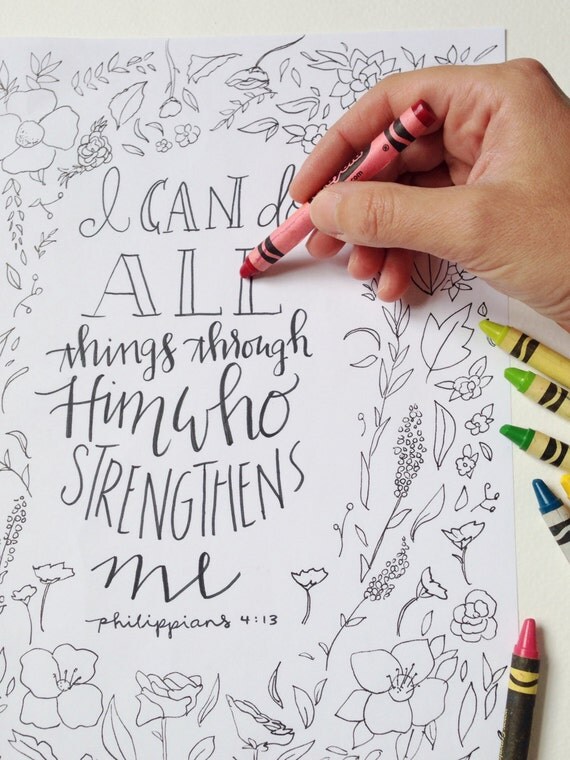 I CAN do
ALL
things through
Him who
STRENGTHENS
me
philippians 4:13